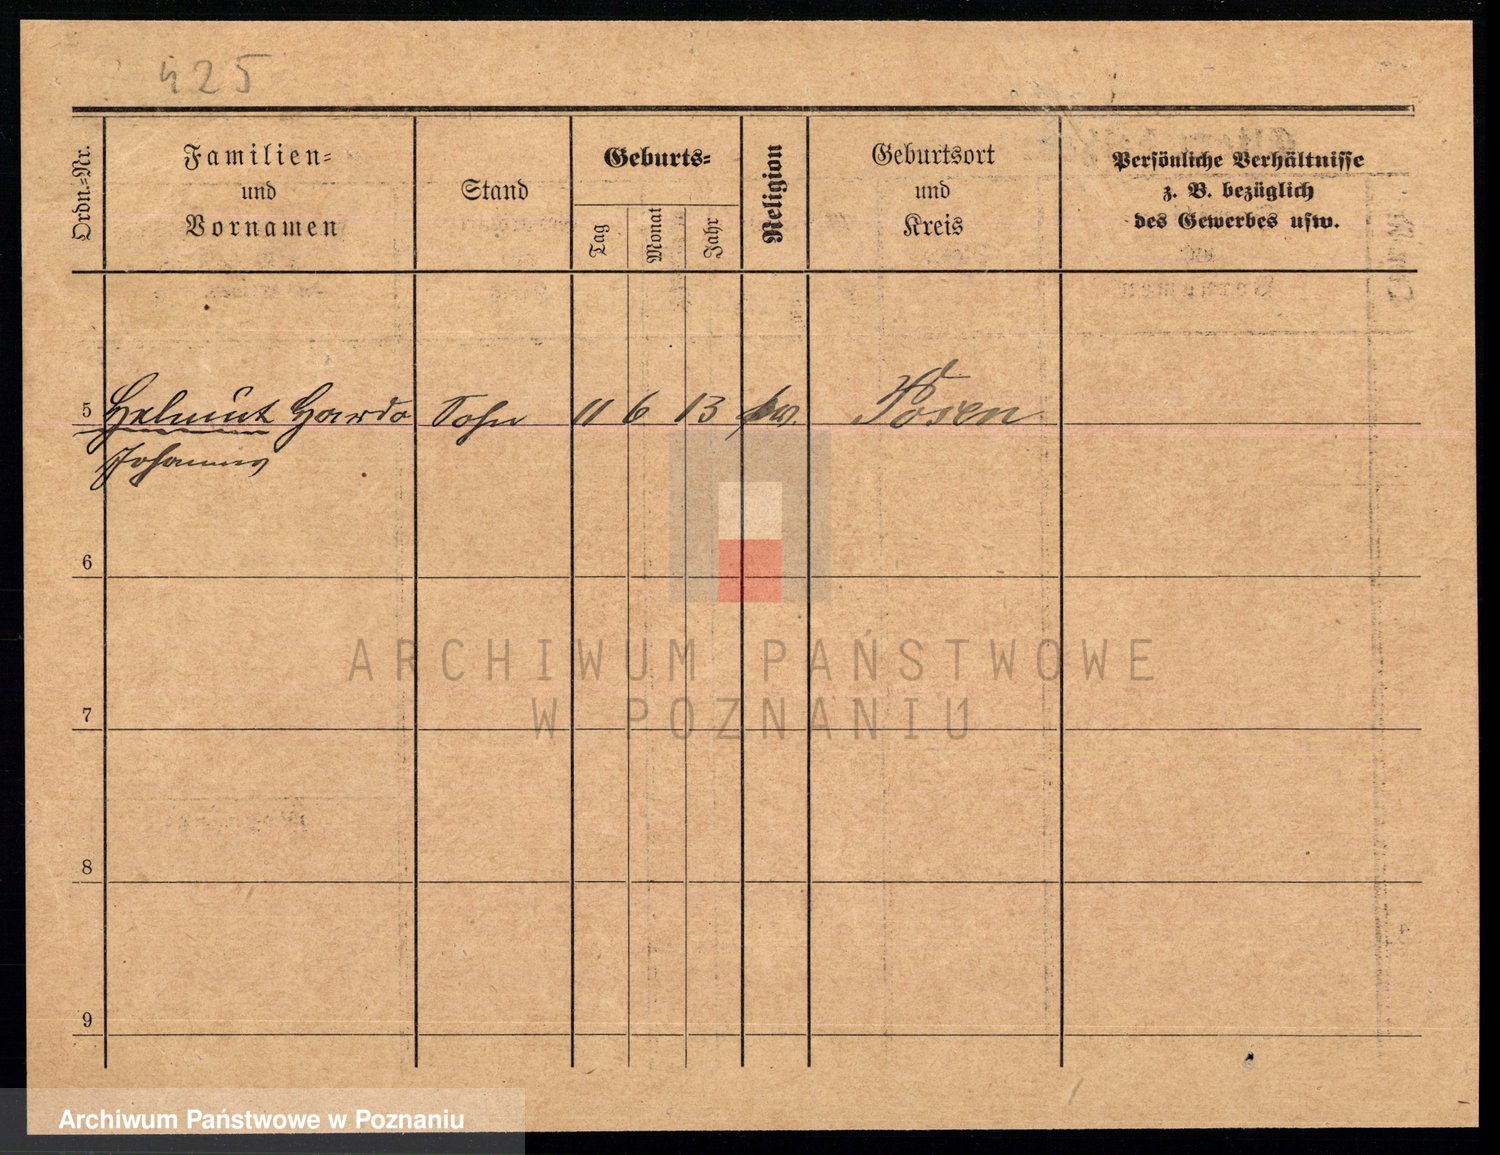 425
Ordn.-Nr.
Familien-
und
Vornamen
Stand
Geburts-
Tag
Monat
Jahr
Religion
Geburtsort
und
Kreis
Persönliche Verhältnisse
z. B. bezüglich
des Gewerbes usw.
5 Helmut Sohn 11 6 13 ew. Posen
Johannes
6
ARCHIWUM PAŃSTWOWE
W POZNANIU
7
8
9
Archiwum Państwowe w Poznaniu